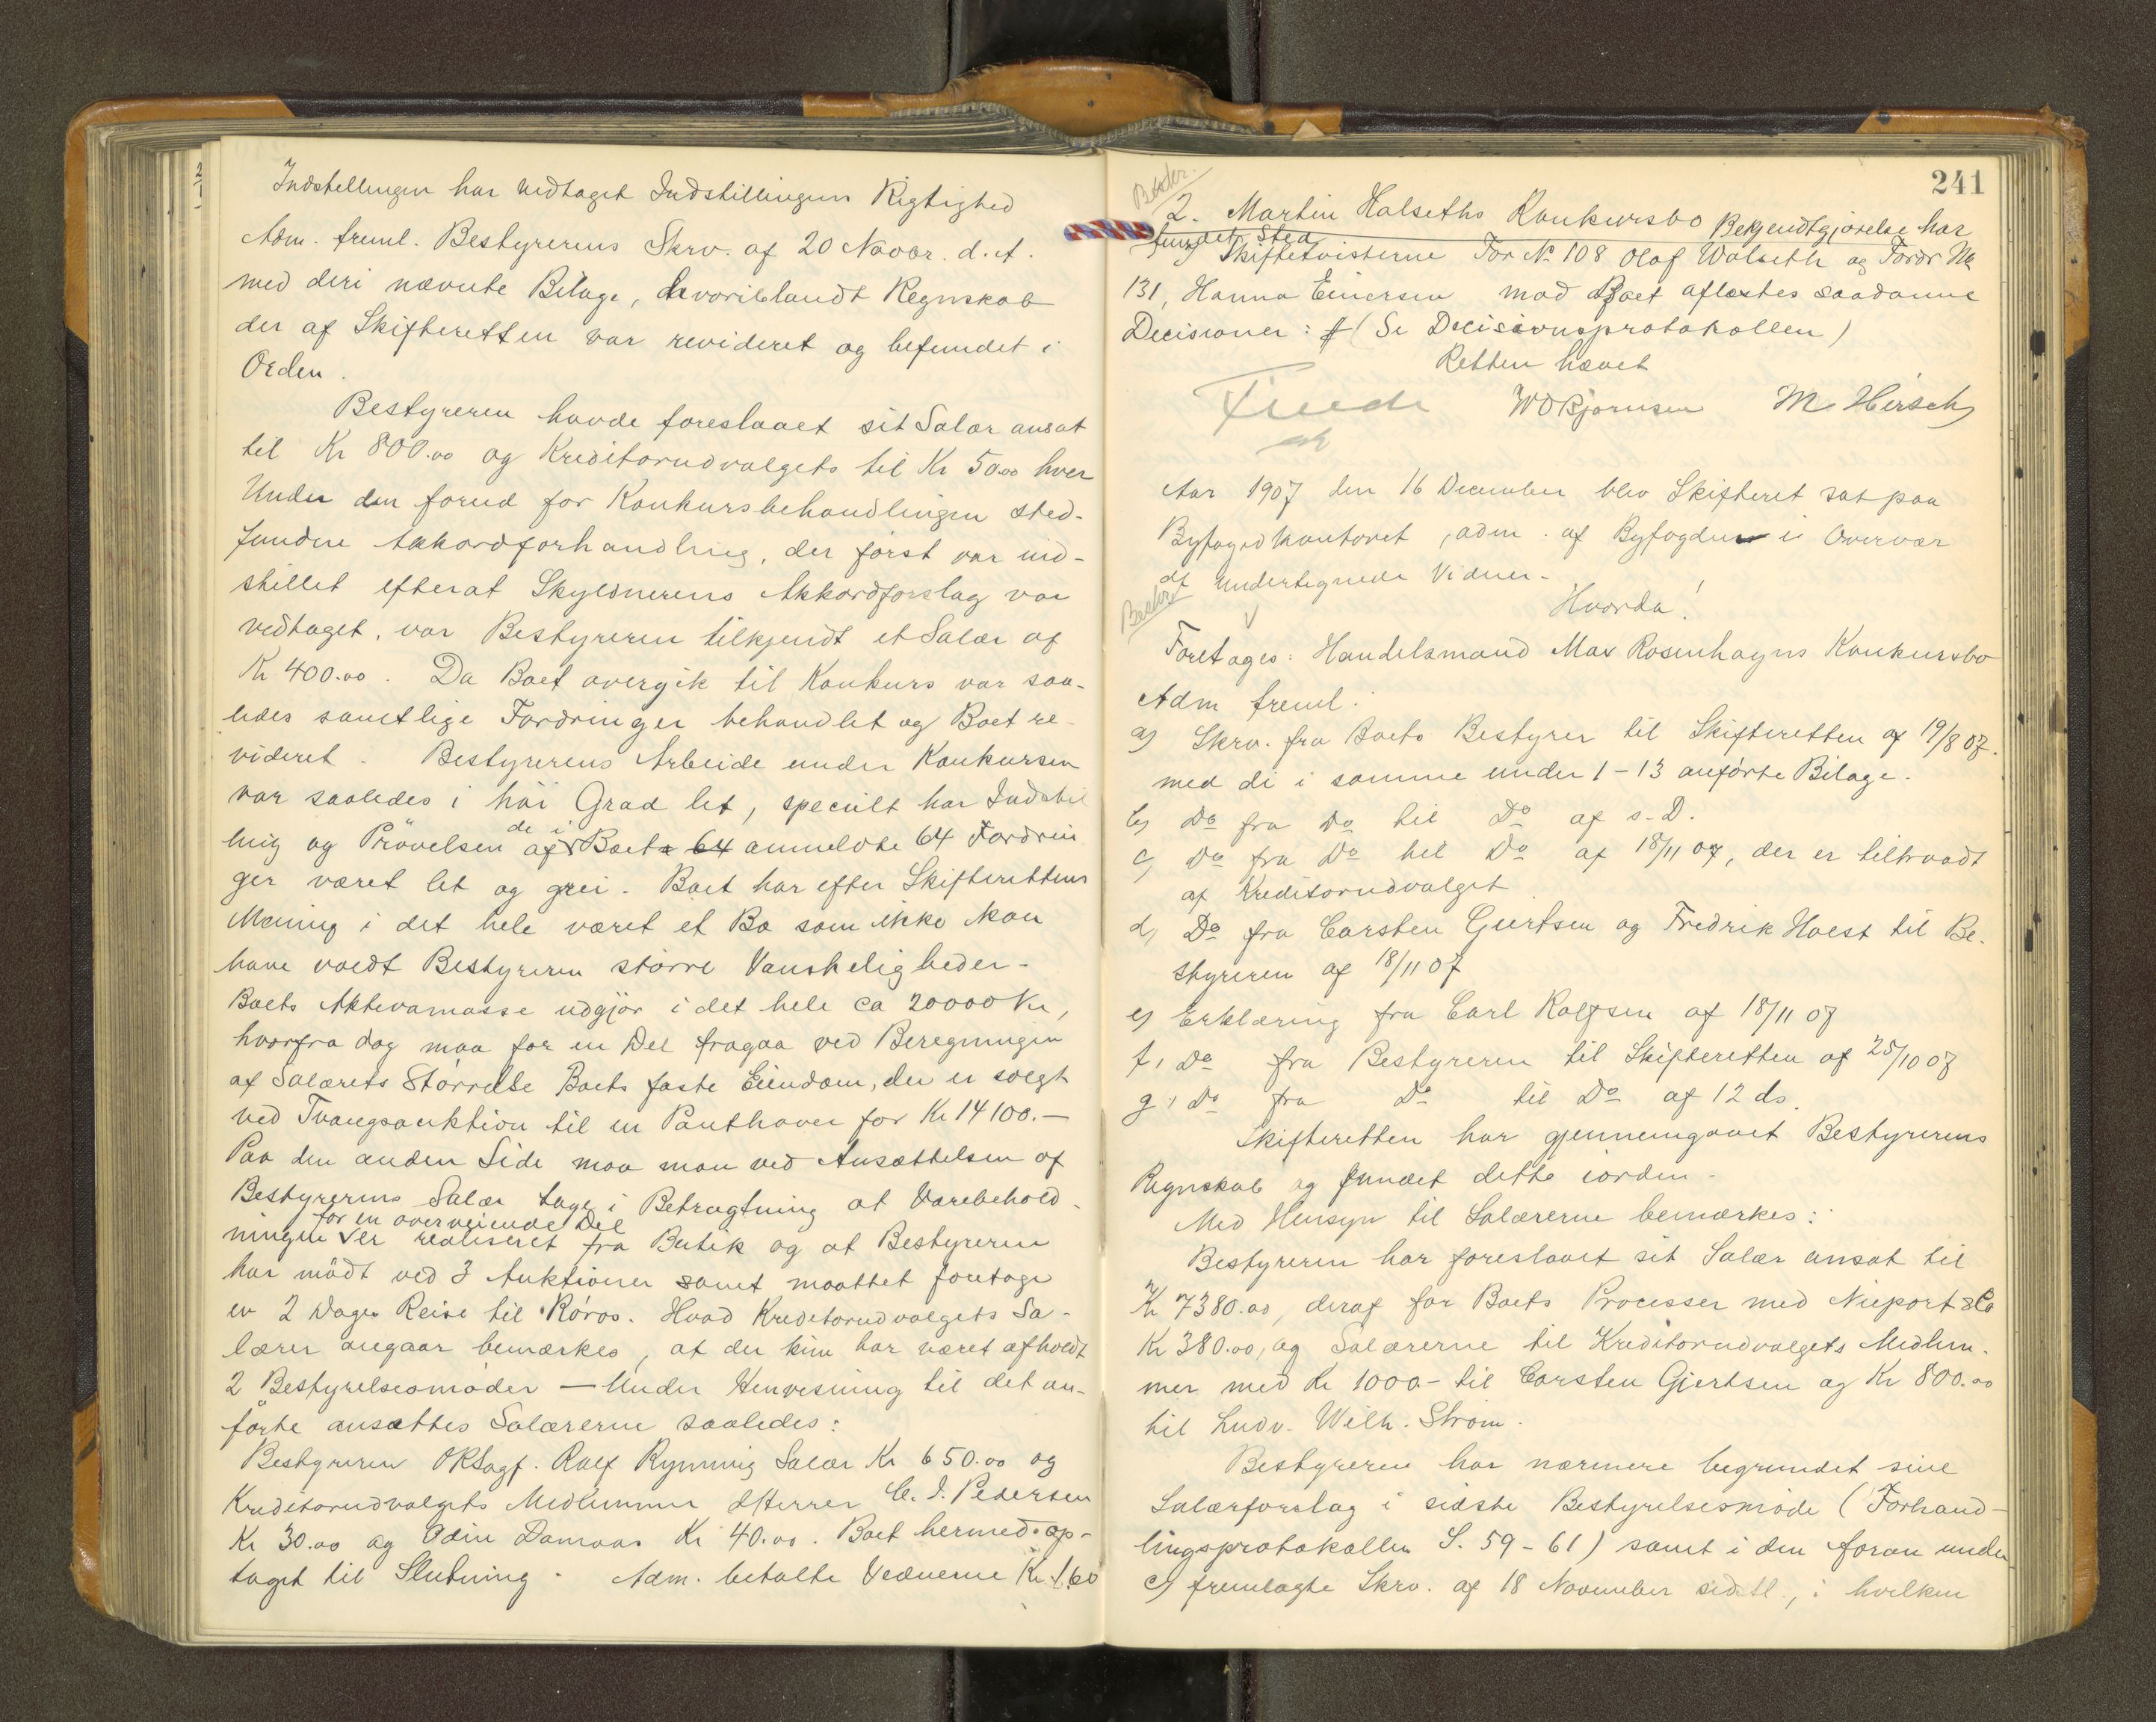 Indstillingen har vedtaget Indstillingens Rigtighed
Adm. freml. Bestyrerens Skrv. af 20 Novbr. d. A.
med deri nævnte Bilage, hvoriblandt Regnskab
der af Skifteretten var revideret og befundet i
Orden.
Bestyreren havde foreslaaet sit Salær ansat
til Kr 800.00 og Kreditorudvalgets til Kr 50.00 hver
Under den forud for Konkursbehandlingen sted-
fundne Akkordforhandling, der først var ind-
stillet efterat Skyldnerens Akkordforslag var
vedtaget, var Bestyreren tilkjendt et Salær af
Kr 400.00. Da Boet overgik til Konkurs var saa-
ledes samtlige Fordringer behandlet og Boet re-
videret. Bestyrerens Arbeide under Konkursen
var saaledes i høi Grad let, specielt har Indstil
ling og Prøvelsen af de i Boet 64 anmeldte 64 Fordrin
ger været let og grei. Boet har efter Skifterettens
Mening i det hele været et Bo som ikke kan
have voldt Bestyreren større Vanskeligheder.
Boets Aktivamasse udgjør i det hele ca 20000 Kr,
hvorfra dog maa for en Del fragaa ved Beregningen
af Salærets Størrelse Boets faste Eiendom, der er solgt
ved Tvangsauktion til en Panthaver for Kr 14100.—
Paa den anden Side maa man ved Ansættelsen af
Bestyrerens Salær tage i Betragtning at Varebehold-
ningen for en overveiende Del er realiseret fra Butik og at Bestyreren
har mødt ved 3 Auktioner samt maattet foretage
en 2 Dages Reise til Røros. Hvad Kreditorudvalgets Sa-
lærer angaar bemærkes, at der kun har været afholdt
2 Bestyrelsesmøder — Under Henvisning til det an-
førte ansættes Salærerne saaledes:
Bestyreren ORSagf. Ralf Rynning Salær Kr 650.00 og
Kreditorudvalgets Medlemmer Herrer C. I. Pedersen
Kr 30.00 og Odin Damaas Kr 40.00. Boet hermed op-
taget til Slutning. Adm. betalte Vidnerne Kr 1.60
241
Beskr.
2. Martin Halseths Konkursbo Bekjendtgjørelse har
fundet Sted
Skiftetvisterne For No 108 Olaf Walseth og Fordr No
131, Hanna Einersen mod Boet aflæstes saadanne
Decisioner: (Se Decisionsprotokollen)
Retten hævet
W O Bjørnsen M Hirsch
Aar 1907 den 16 December blev Skifteret sat paa
Byfogedkontoret, adm. af Byfogden i Overvær
af undertegnede Vidner.
Hvorda!
Beskr
Foretages: Handelsmand Max Rosenhayns Konkursbo
Adm freml.
a) Skrv. fra Boets Bestyrer til Skifteretten af 19/8 07.
med de i samme under 1-13 anførte Bilage.
b) Do fra Do til Do af s. D.
c) Do fra Do til Do af 18/11 07, der er tiltraadt
af Kreditorudvalget
d) Do fra Carsten Gjertsen og Fredrik Hoest til Be-
styreren af 18/11 07
e) Erklæring fra Carl Rolfsen af 18/11 07
f, Do fra Bestyreren til Skifteretten af 25/10 07
g, Do fra Do til Do af 12 ds.
Skifteretten har gjennemgaaet Bestyrerens
Regnskab og fundet dette iorden.
Med Hensyn til Salærerne bemærkes:
Bestyreren har foreslaaet sit Salær ansat til
Kr 7380.00, deraf for Boets Processer med Nieport & Co
Kr 380.00, og Salærerne til Kreditorudvalgets Medlem-
mer med Kr 1000.- til Carsten Gjertsen og Kr 800.00
til Ludv. Wilh. Strøm.
Bestyreren har nærmere begrundet sine
Salærforslag i sidste Bestyrelsesmøde (Forhand-
lingsprotokollen S. 59-61) samt i den foran under
c) fremlagte Skrv. af 18 November sidstl., i hvilken